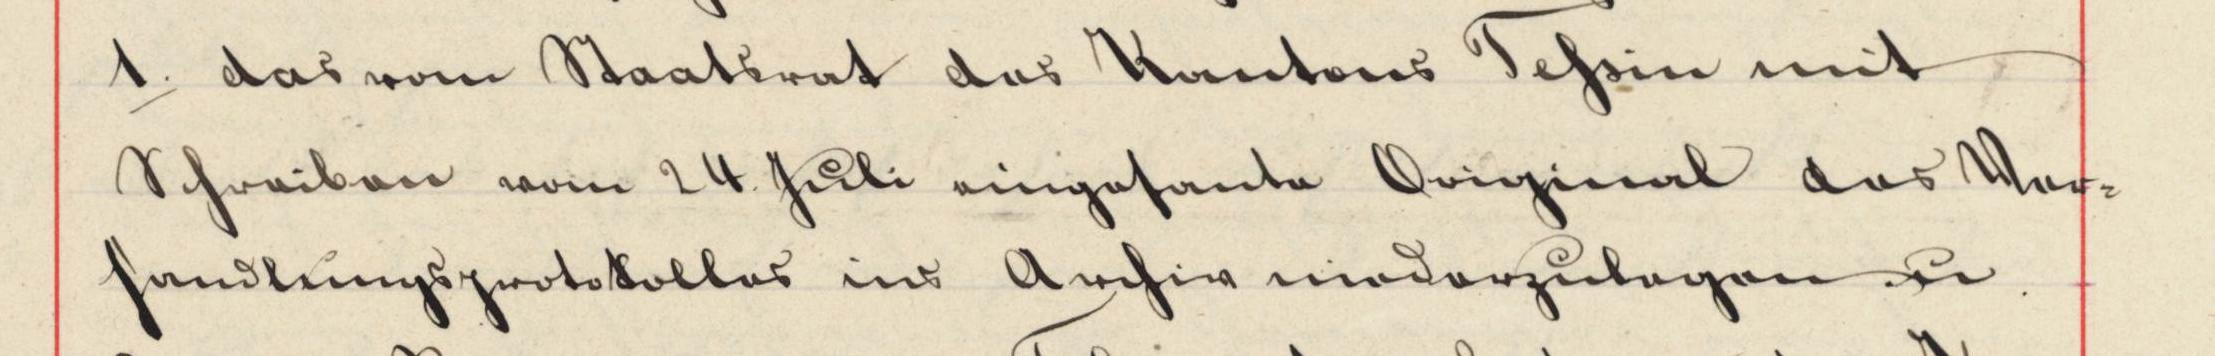 1. das vom Staatsrat des Kantons Tessin mit
Schreiben vom 24. Juli eingesante Original des Ver-
handlungsprotokolles ins Archiv niederzulegen u.